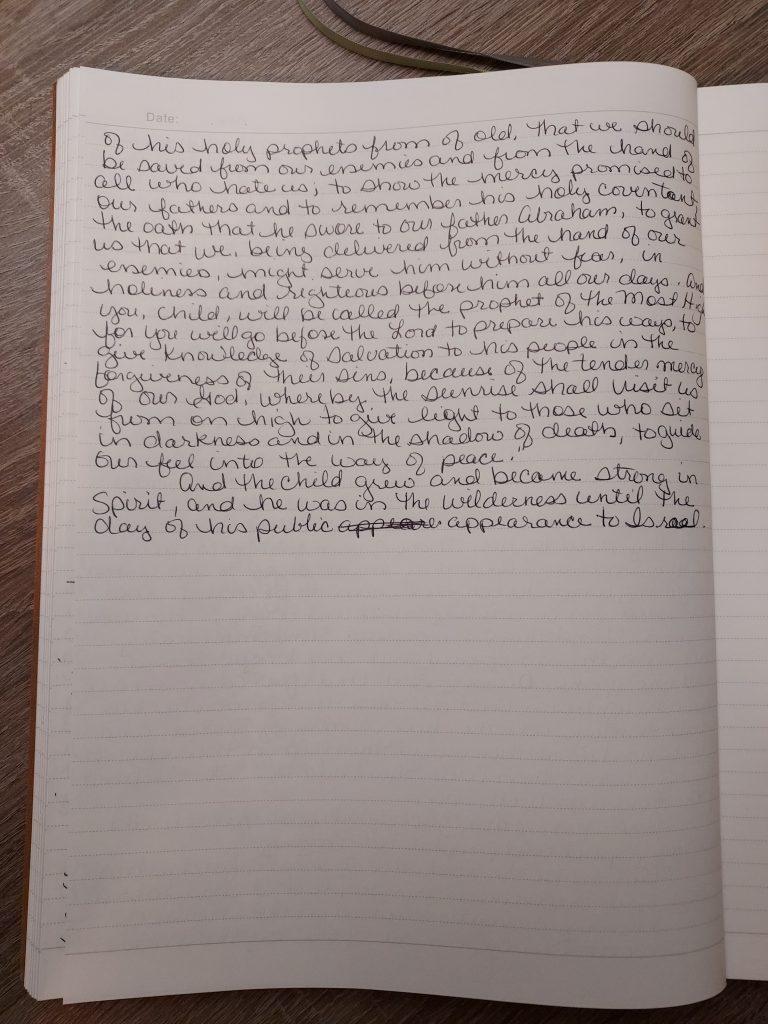 Date:
of his holy prophets from of old, that we should
be saved from our enemies and from the hand of
all who hate us; to show the mercy promised to
our fathers and to remember his holy coventant
the oath that he swore to our father Abraham, to grant
us that we, being delivered from the hand of our
enemies, might serve him without fear, in
holiness and righteous before him all our days. And
you, child, will be called the prophet of the Most High
for you will go before the Lord to prepare his ways, to
give knowledge of salvation to his people in the
forgiveness of their sins, because of the tender mercy
of our God, whereby the sunrise shall visit us
from on high to give light to those who sit
in darkness and in the shadow of death, to guide
our feel into the way of peace."
And the child grew and became strong in
Spirit, and he was in the wilderness until the
day of his public appeare appearance to Israel.